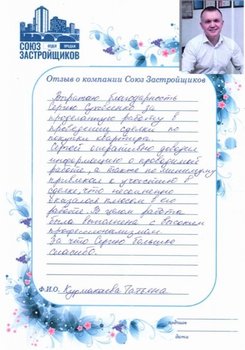 СОЮЗ
ОТДЕЛ ПРОДАЖ
ЗАСТРОЙЩИКОВ
Отзыв о компании Союз Застройщиков
Выражаю благодарность
Сергею за
проделанную работу в
проведении сделки по
покупки квартиры.
Сергей оперативно доводил
информацию о проводимой
работе, а также по минимуму
привлекал к участию в
сделке, что несомненно
оказалось плюсом в его
работе. В целом работа
была выполнена с высоким
профессионализмом.
За что Сергею большое
спасибо.
Ф.И.О. Татьяна
подпись
дата